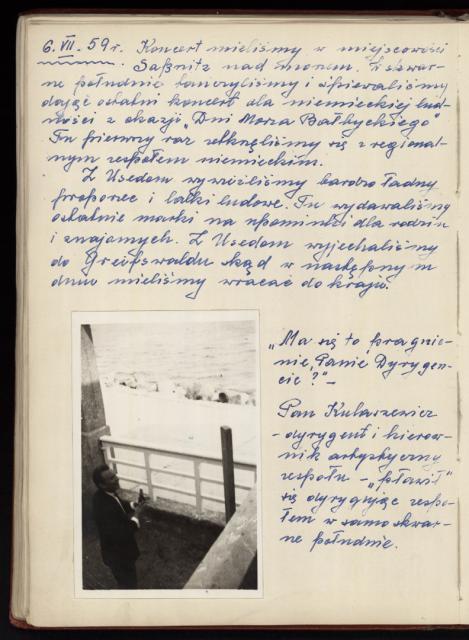 6. VII. 59 r. Koncert mieliśmy w miejscowości
Saßnitz nad morzem. W skwar-
ne południe tańczyliśmy i śpiewaliśmy
dając ostatni koncert dla niemieckiej lud-
ności z okazji „Dni Morza Bałtyckiego"
Tu pierwszy raz zetknęliśmy się z regional-
nym zespołem niemieckim.
Z Usedom wywieźliśmy bardzo ładny
proporzec i lalki ludowe. Tu wydawaliśmy
ostatnie marki na upominki dla rodzin
i znajomych. Z Usedom wyjechaliśmy
do Greifswaldu skąd w następnym
dniu mieliśmy wracać do kraju.
„Ma się to pragnie-
nie, Panie Dyrygen-
cie?" –
Pan Kularzewicz
– dyrygent i kierow-
nik artystyczny
zespołu – „pławił"
się dyrygując zespo-
łem w samo skwar-
ne południe.